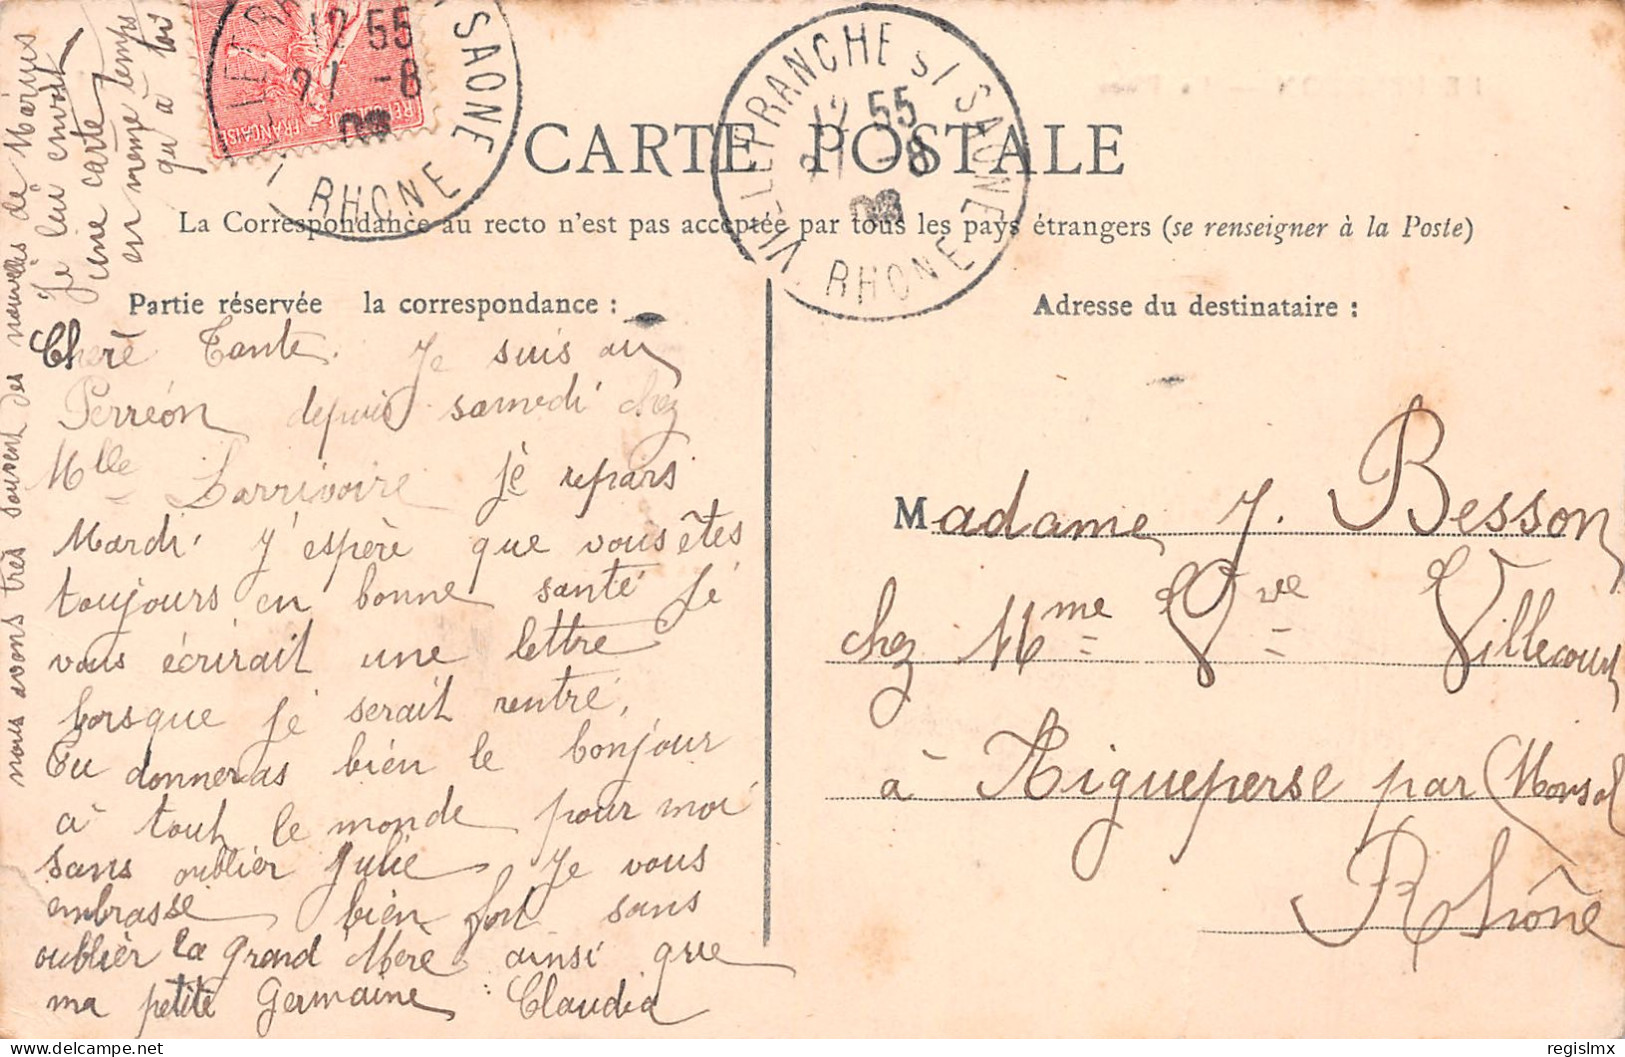 CARTE POSTALE
La Correspondance au recto n'est pas acceptée par tous les pays étrangers (se renseigner à la Poste)
Partie réservée la correspondance :
Adresse du destinataire :
Cherè Tante. Je suis au
Perréon depuis samedi chez
Mlle Larrivoire jè repars
Mardi. J'espère que vous êtes
toujours en bonne santé Jé
vous écrirait une lettre
lorsque jé serait rentré,
Tu donneras bién le bonjour
à tout le monde pour moi
sans oublier Julie Je vous
embrasse bién fort sans
oubliér la Grand Mère ainsi que
ma petite Germaine Claudia
nous avons très souvent des nouvelles de Marius
Je lui envoit
une carte
en même temps
qu'à toi
Madame J. Besson
chez Mme Vve Villecourt
à Aigueperse par Monsol
Rhône
VILLEFRANCHE S/ SAONE
12 55
-8
RHONE
SAONE
12 55
21 -8
RHONE
REPUBLIQUE FRANÇAISE
regislmx